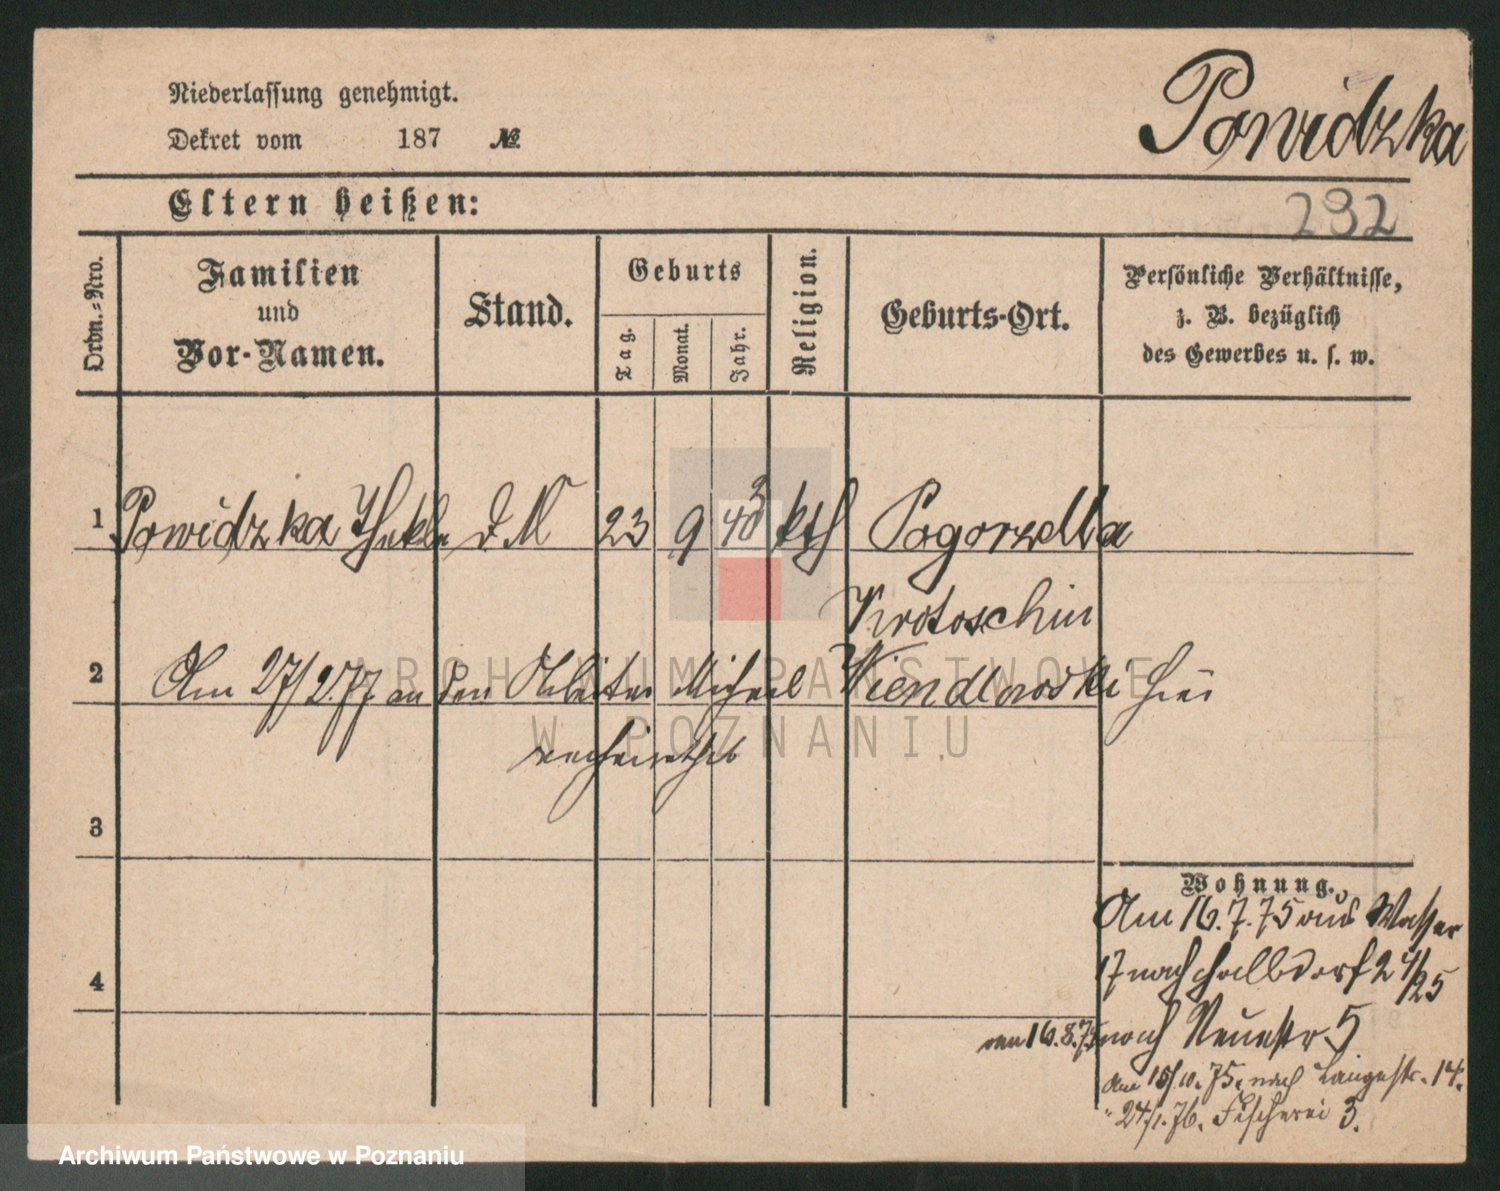 Niederlassung genehmigt.
Dekret vom 187 №
Powidzka
Eltern heißen:
232
Ordn.-Nro.
Familien
und
Vor-Namen.
Stand.
Geburts
Tag.
Monat.
Jahr.
Religion.
Geburts-Ort.
Persönliche Verhältnisse,
z. B. bezüglich
des Gewerbes u. s. w.
1 Powidzka Thekla d. M 23 9 kth Pogorzella
Krotoschin
2 Am 27/2.77 an den Arbeiter Michael Wiendlowski hier
verheirathet
3
4
Wohnung.
Am 16.7.75 aus Wasser
17 nach Halbdorf 24/25
am 16.8.75 nach Neuestr 5
Am 15/10.75. nach Langestr. 14.
" 24/1.76. Fischerei 3.
ARCHIWUM PAŃSTWOWE
W POZNANIU
Archiwum Państwowe w Poznaniu